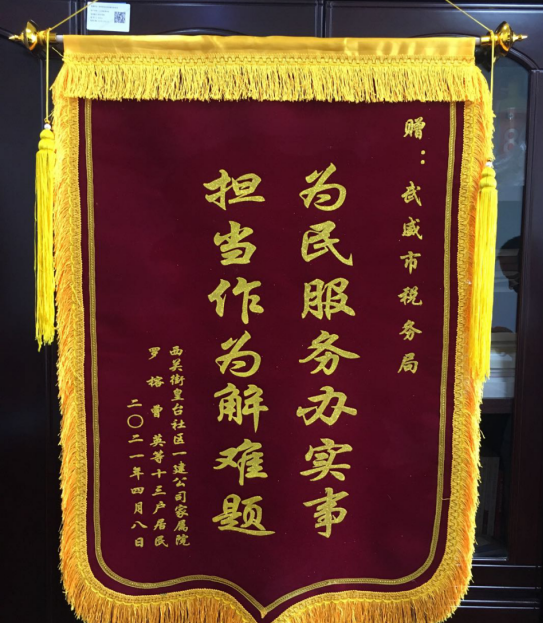 赠：武威市税务局
为民服务办实事
担当作为解难题
西关街皇台社区一建公司家属院
罗榕 曹英等十三户居民
二〇二一年四月八日